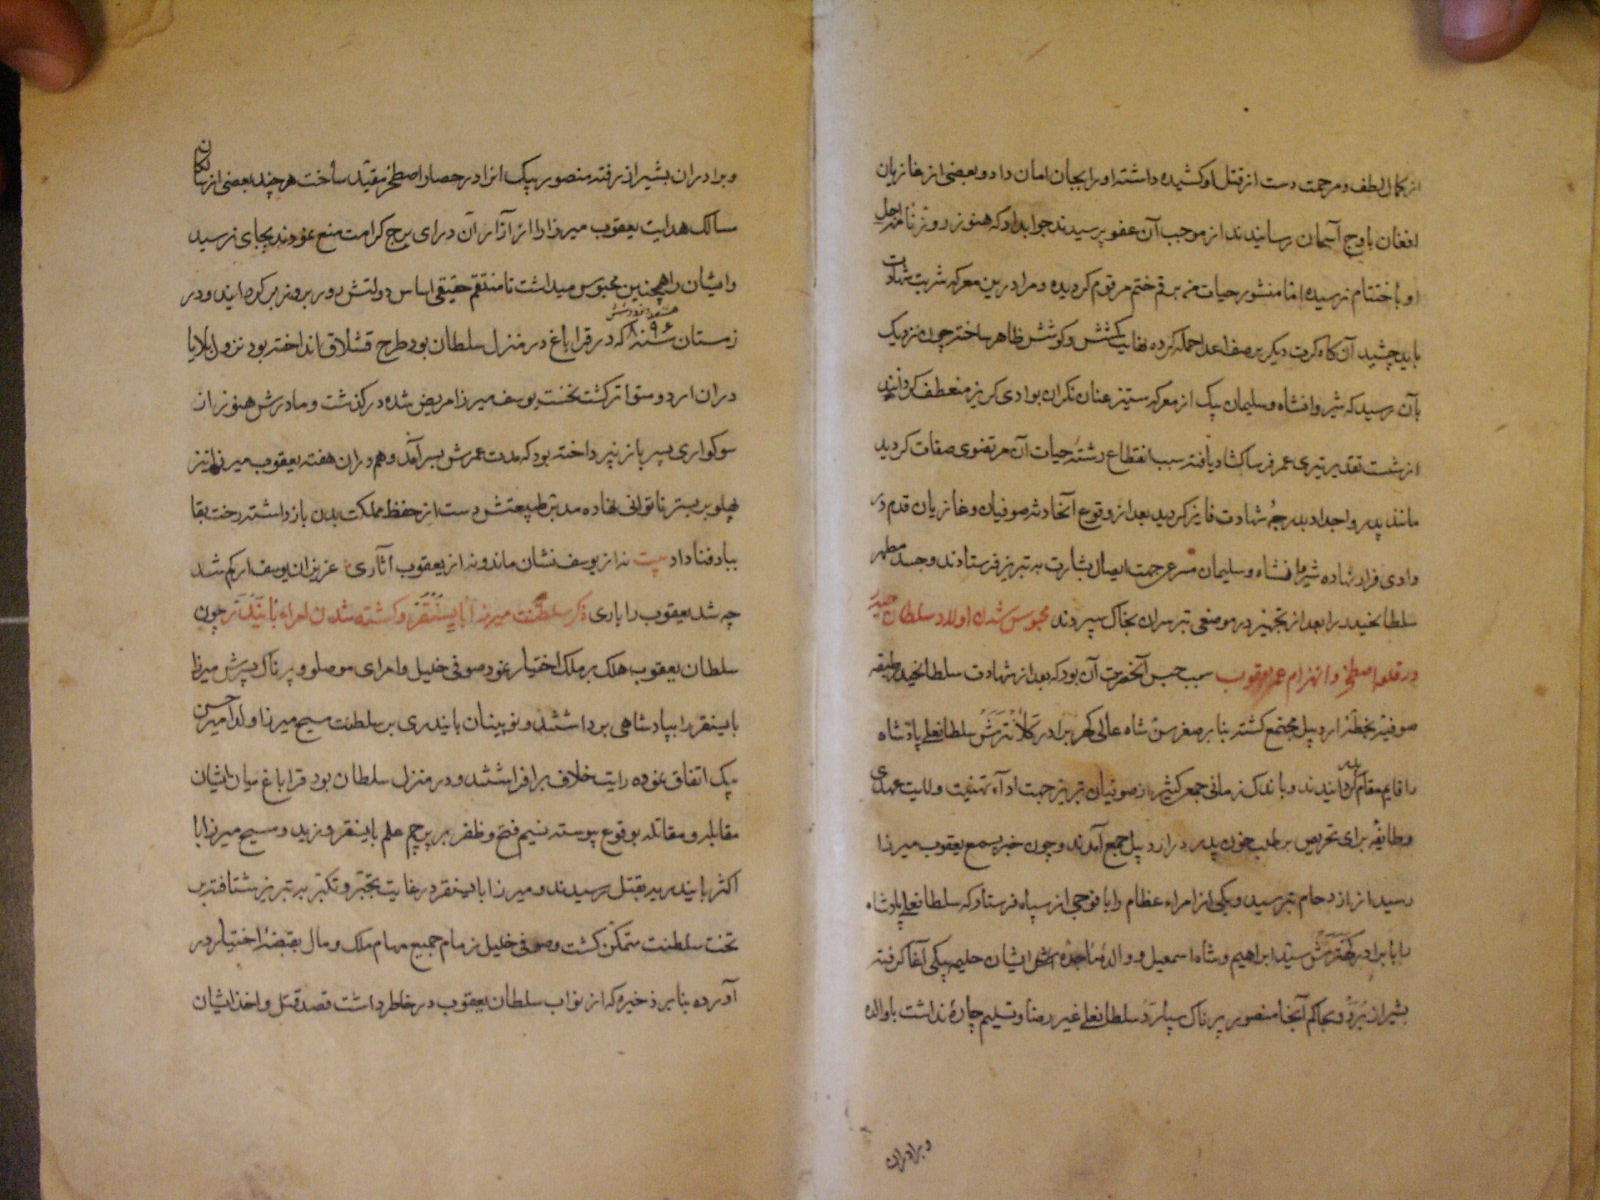 از کمال لطف و مرحمت دست از قتل او کشیده داشته او را بجان امان داد و بعضی از غازیان
افغان باوج آسمان رسانیدند از موجب آن عفو پرسیدند جواب داد که هنوز روزنامه اجل
او باختتام نرسیده اما منشور حیات من برقم ختم مرقوم گردیده و مرا درین معرکه شربت شهادت
باید چشید آنگاه کرت دیگر بر صف اعدا حمله کرده نهایت کشش و کوشش ظاهر ساخته چون نزدیک
بآن رسید که شیروانشاه و سلیمان بیک از معرکه ستیز عنان نکران بوادی کریز منعطف گردانند
از شست تقدیر تیری عمر فرسا گشاد یافته سبب انقطاع رشته حیات آن مرتضوی صفات گردید
مانند پدر و اجداد بدرجه شهادت فایز گردید بعد از وقوع آنحادثه صوفیان و غازیان قدم در
وادی فرار نهاده شیروانشاه و سلیمان مسرعی جهت ایصال بشارت به تبریز فرستادند و جسد مطهر
سلطانحیدر را بعد از تجهیز در موضعی تبرسران بخاک سپردند محبوس شدن اولاد سلطان حیدر
در قلعه اصطخر و انهزام عمر یعقوب سبب حبس آنحضرت آن بود که بعد از شهادت سلطانحیدر طبقه
صوفیه بخطه اردبیل مجتمع گشته بنا بر صغر سن شاه عالی گهر برادر کلانترش سلطانعلی پادشاه
را قایم مقام پدر گردانیدند و باندک زمانی جمع کثیر از صوفیان تبریز جهت اداء تهنیت ولایت عهدی
و طایفه برای تحریص بر طلب خون پدر در اردبیل جمع آمدند و چون خبر بسمع یعقوب میرزا
رسید از ازدحام بترسید و یکی از امراء عظام را با فوجی از سپاه فرستاد که سلطانعلی پادشاه
را با برادر کهترش سید ابراهیم و شاه اسمعیل و والده ماجده ایشان حلیمه بیکی آغا گرفته
بشیراز برد و بحاکم آنجا منصور پرناک سپارد سلطانعلی غیر رضا و تسلیم چاره نداشت با والده
و برادران
و برادران بشیراز رفته منصور بیک انرا در حصار اصطخر مقید ساخت هر چند بعضی از سالکان
مسالک هدایت یعقوب میرزا را از آزار آن درای برج کرامت منع نمودند بجای نرسید
و ایشان را همچنین محبوس میداشت تا منتقم حقیقی اساس دولتش زیر و زبر کردانید و در
زمستان سنه ۸۹۶ هشتصد و نود و شش که در قراباغ در منزل سلطان بود طرح قشلاق انداخته بود نزول بلایا
دران اردو متواتر گشت نخست یوسف میرزا مریض شده درگذشت و مادرش هنوز از
سوکواری پسر باز نپرداخته بود که مدت عمرش بسر آمد و هم دران هفته یعقوب میرزا نیز
پهلو بر بستر ناتوانی نهاده مدبر طبیعتش دست از حفظ مملکت بدن باز داشته رخت بقا
بباد فنا داد بیت نه از یوسف نشان ماند و نه از یعقوب آثاری عزیزان یوسف ار گم شد
چه شد یعقوب را باری ذکر سلطنت میرزا بایسنقر و کشته شدن امراء بایندر چون
سلطان یعقوب هلک بر ملک اختیار نمود صوفی خلیل و امرای موصلو و پرناک پسرش میرزا
بایسنقر را بپادشاهی برداشتند و نویینان بایندری بر سلطنت مسیح میرزا ولد امیر حسن
بیک اتفاق نموده رایت خلاف برافراشتند و در منزل سلطان بود قراباغ میان ایشان
مقابله و مقاتله بوقوع پیوسته نسیم فتح و ظفر بر پرچم علم بایسنقر وزید و مسیح میرزا با
اکثر بایندریه بقتل رسیدند و میرزا بایسنقر در غایت تجبر و تکبر به تبریز شتافته بر
تخت سلطنت متمکن گشت و صوفی خلیل زمام جمیع مهام ملک و مال بقبضه اختیار در
آورده بنا بر ذخیره که از نواب سلطان یعقوب در خاطر داشت قصد قتل و اخذ ایشان